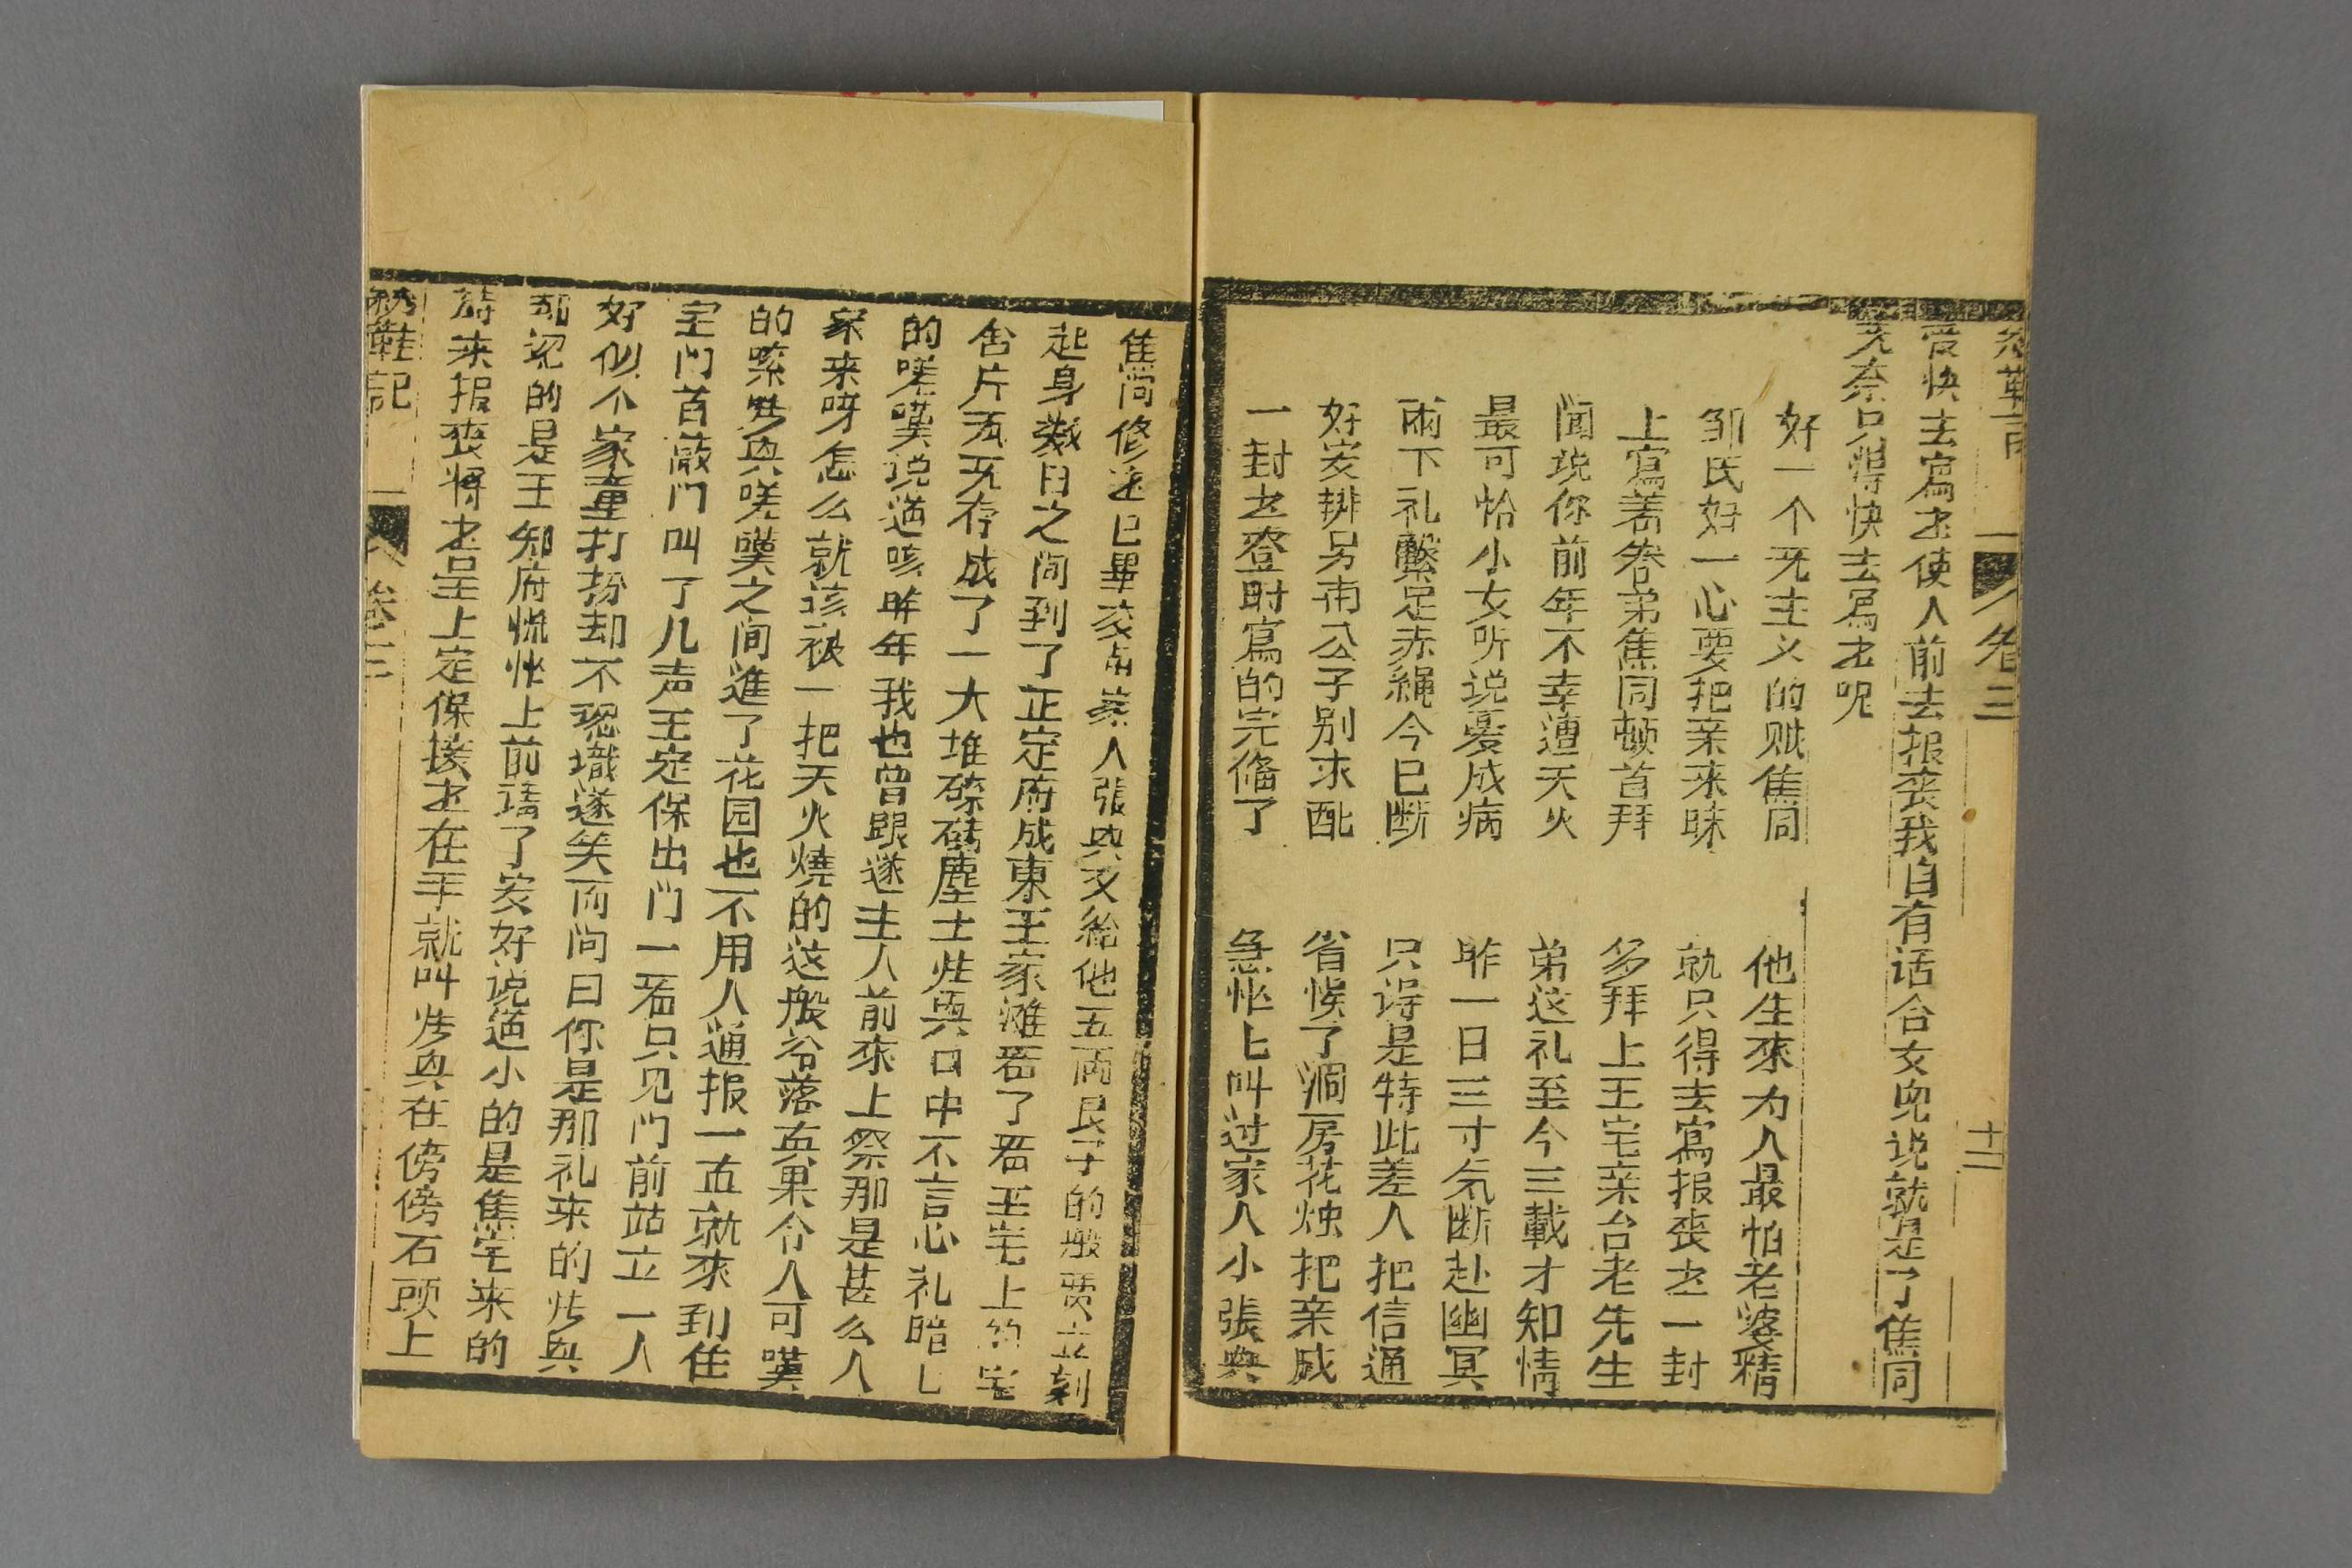 卷三
十二
受快去寫书使人前去报丧我自有话合女兒说就是了焦同
无奈只得快去寫书呢
好一个无主义的贼焦同
他生來为人最怕老婆精
邹氏好一心要把亲来昧
就只得去寫报丧书一封
上寫着眷弟焦同顿首拜
多拜上王宅亲台老先生
闻说你前年不幸遭天火
弟这礼至今三載才知情
最可怜小女听说憂成病
昨一日三寸气断赴幽冥
兩下礼繫足赤繩今已断
只得是特此差人把信通
好安排另甫公子别求配
省悞了洞房花烛把亲成
一封书登时寫的完偹了
急忙上叫过家人小張典
焦同修书已畢交与家人張典又給他五两艮子的般费立刻
起身数日之间到了正定府成東王家滩看了看王宅上的宅
舍片瓦无存成了一大堆磚磚塵土
典口中不言心礼暗
的嗟嘆说道咳昨年我也曾跟遂主人前來上祭那是甚么人
家来呀怎么就该被一把天火燒的这般冷落真果令人可嘆
嗟嘆之间進了花园也不用人通报一直就來到住
宅门首敲门叫了几声王定保出门一看只见门前站立一人
好似个家童打扮却不認識遂笑而问曰你是那礼来的
認的是王知府慌忙上前請了安好说道小的是焦宅来的
来报丧将书呈上定保接书在手就叫
典在傍傍石頭上
绣鞋記
卷三